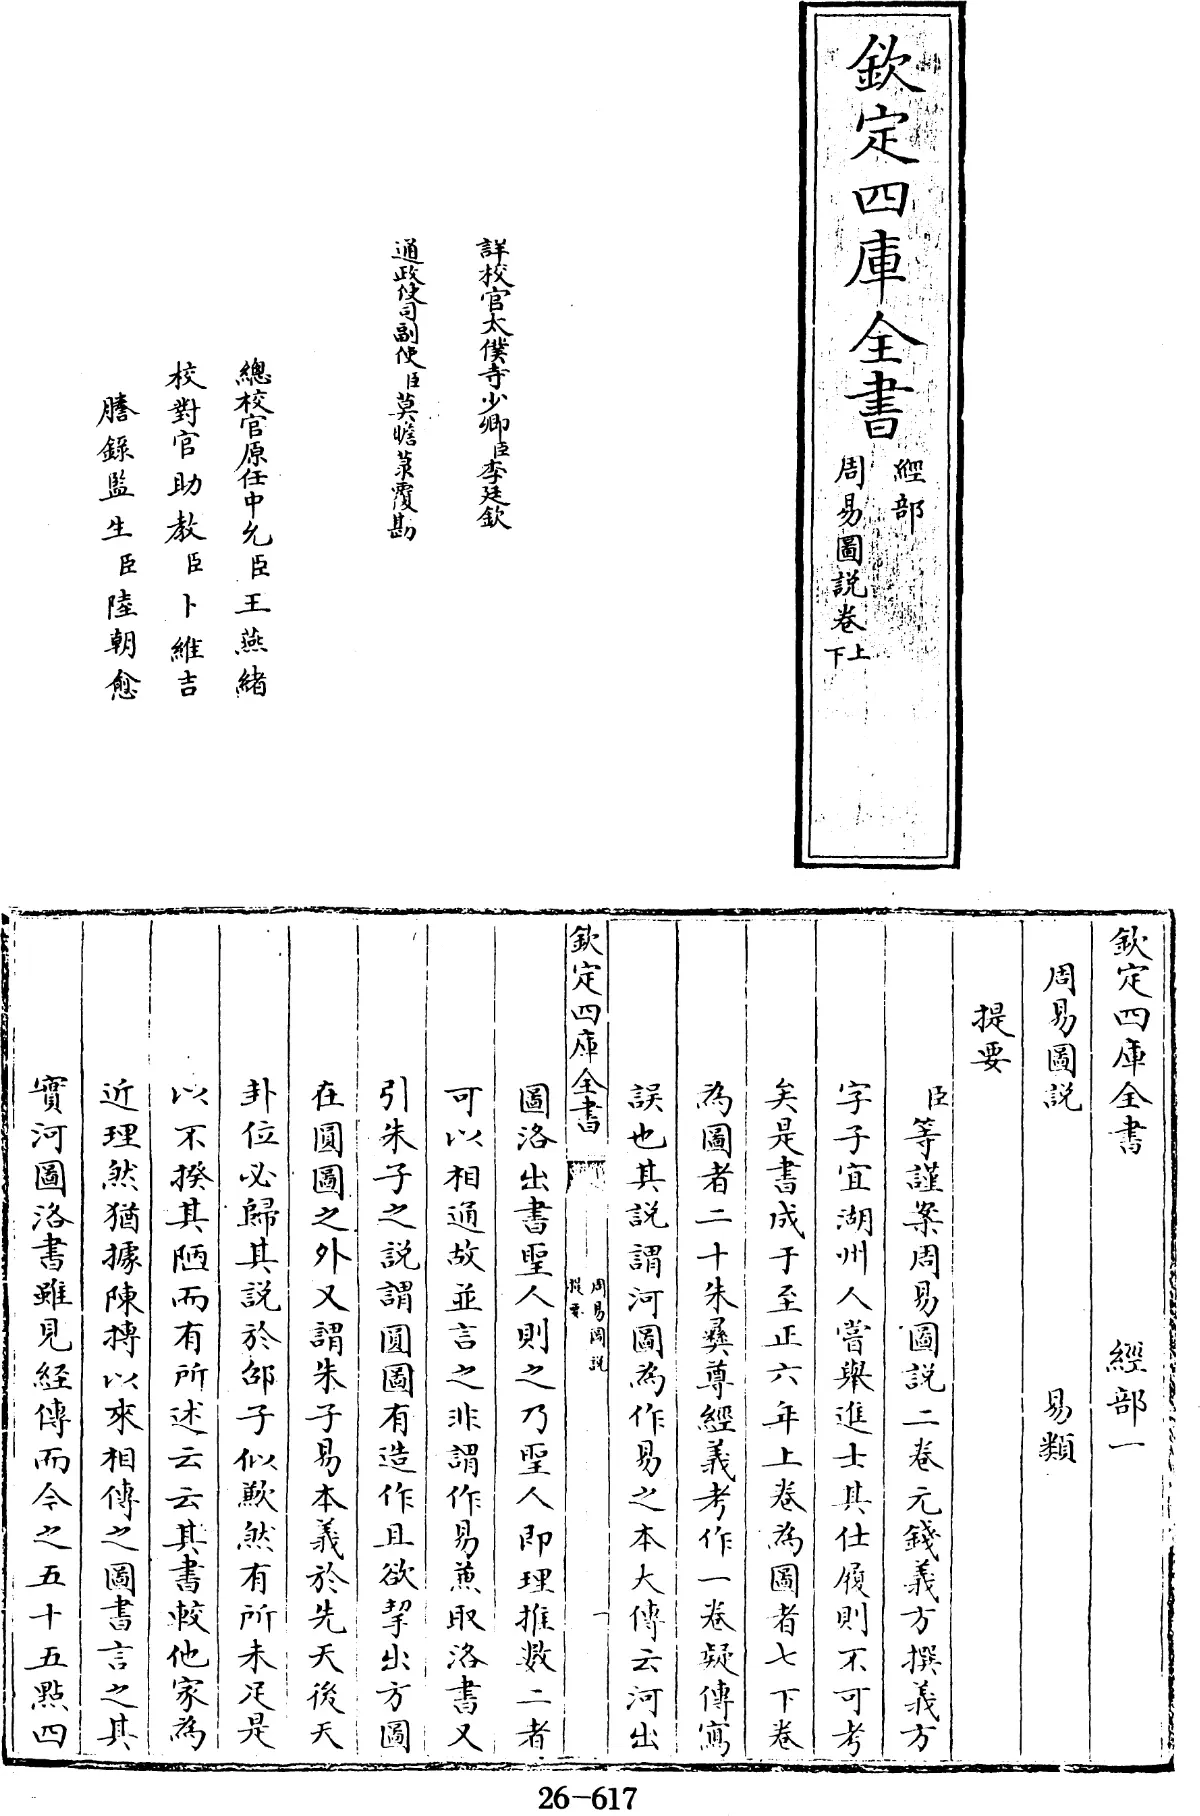 欽定四庫全書
經部
周易圖説卷上下
詳校官太僕寺少卿臣李廷欽
通政使司副使臣莫瞻菉覆勘
總校官原任中允臣王燕緒
校對官助教臣卜維吉
謄錄監生臣陸朝愈
欽定四庫全書 經部一
周易圖説 易類
提要
臣等謹案周易圖説二卷元錢義方撰義方
字子宜湖州人嘗舉進士其仕履則不可考
矣是書成于至正六年上卷為圖者七下卷
為圖者二十朱彝尊經義考作一卷疑傳寫
誤也其説謂河圖為作易之本大傳云河出
欽定四庫全書
周易圖説
提要
一
圖洛出書聖人則之乃聖人即理推數二者
可以相通故並言之非謂作易兼取洛書又
引朱子之説謂圓圖有造作且欲挈出方圖
在圓圖之外又謂朱子易本義於先天後天
卦位必歸其説於邵子似歉然有所未足是
以不揆其陋而有所述云云其書較他家為
近理然猶據陳摶以來相傳之圖書言之其
實河圖洛書雖見經傳而今之五十五點四
26-617